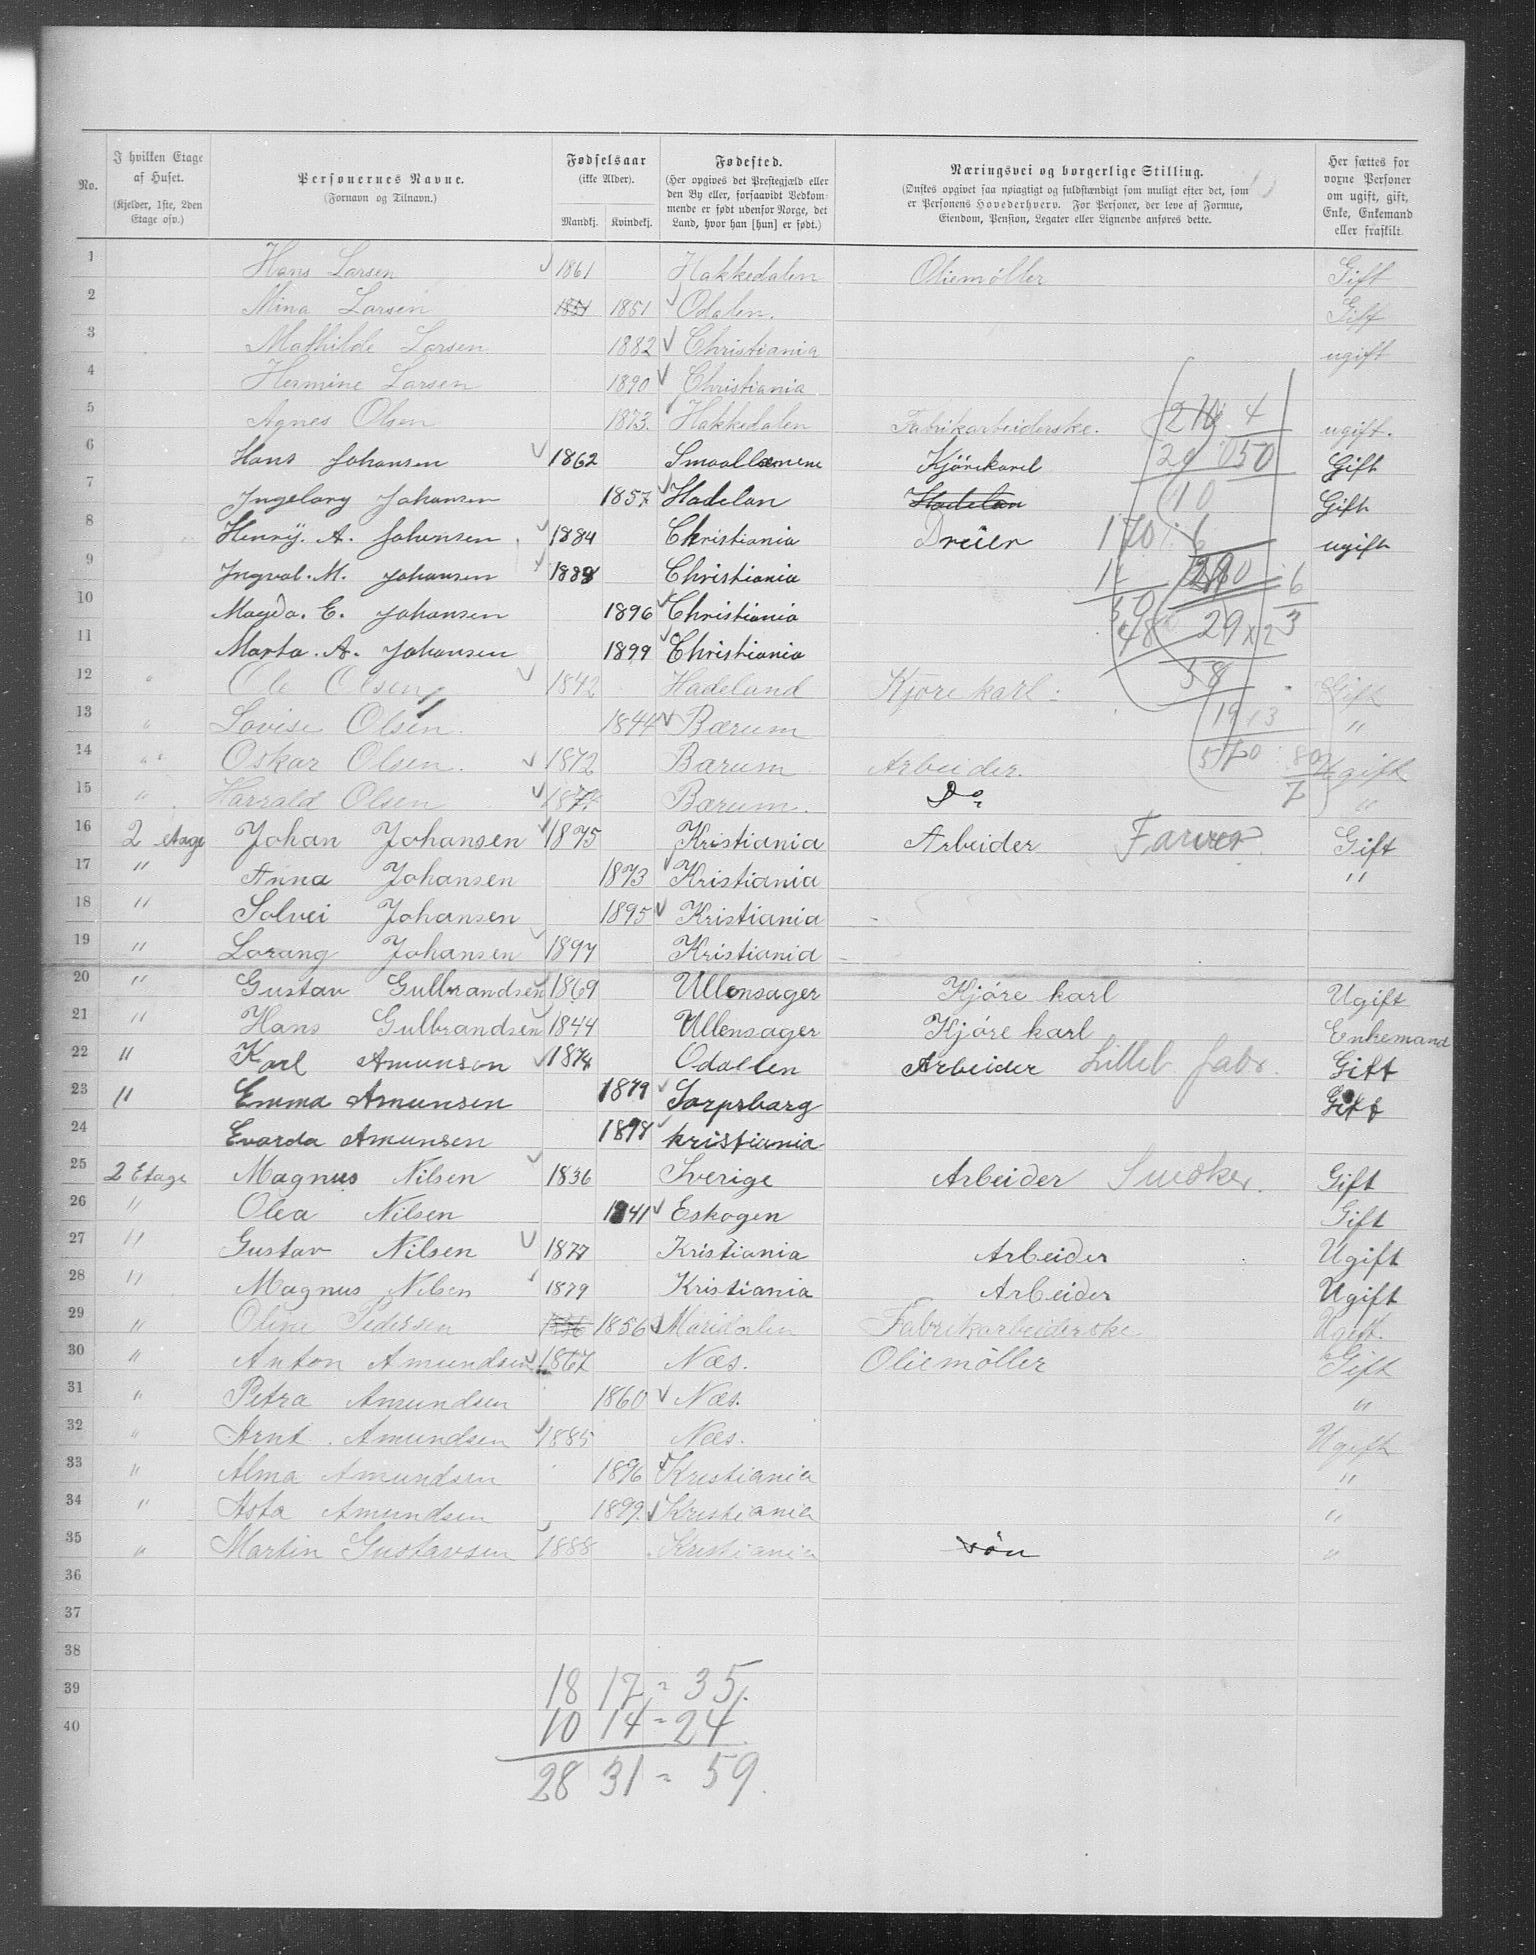 No. | I hvilken Etage af Huset. (Kjelder, 1ste, 2den Etage osv.) | Personernes Navne. (Fornavn og Tilnavn.) | Fødselsaar (ikke Alder). Mandkj. | Kvindekj. | Fødested. (Her opgives det Prestegjæld eller den By eller, forsaavidt Vedkommende er født udenfor Norge, det Land, hvor han [hun] er født.) | Næringsvei og borgerlige Stilling. (Ønskes opgivet saa nøiagtigt og fuldstændigt som muligt efter det, som er Personens Hovederhverv. For Personer, der leve af Formue, Eiendom, Pension, Legater eller Lignende anføres dette. | Her sættes for voxne Personer om ugift, gift, Enke, Enkemand eller fraskilt.
1 Hans Larsen 1861 Hakkedalen Oliemöller Gift
2 Mina Larsen 1851 1851 Odalen. Gift
3 Mathilde Larsen 1882 Christiania ugift
4 Hermine Larsen 1890 Christiania
5 Agnes Olsen 1873. Hakkedalen Fabrikarbeiderske. ugift.
6 Hans Johansen 1862 Smaallenene Kjörekarl Gift
7 Ingeborg Johansen 1857 Hadelan Hadelan Gift
8 Henrÿ. A. Johansen 1884 Christiania Dreier ugift
9 Ingval. M. Johansen 1888 Christiania
10 Magda. E. Johansen 1896 Christiania
11 Marta. A. Johansen 1899 Christiania
12 " Ole Olsen 1842 Hadeland Kjøre karl. Gift
13 " Lovise Olsen. 1844 Bærum "
14 " Oskar Olsen. 1872 Bærum Arbeider. Ugift
15 " Harrald Olsen 1874 Bærum. Do "
16 2 etage Johan Johansen 1875 Kristiania Arbeider Farver Gift
17 " Anna Johansen 1873 Kristiania "
18 " Solvei Johansen 1895 Kristiania
19 " Lorang Johansen 1897 Kristiania
20 " Gustav Gulbrandsen 1869 Ullensager Kjøre karl Ugift
21 " Hans Gulbrandsen 1844 Ullensager Kjøre karl Enkemand
22 " Karl Amunson 1878 Odallen Arbeider Lilleb fabr. Gift
23 " Emma Amunsen 1879 Sarpsbarg Gift
24 Evarda Amunsen 1898 kristiania
25 2 Etage Magnus Nilsen 1836 Sverige Arbeider Gift
26 " Olea Nilsen 1841 Eskogen Gift
27 " Gustav Nilsen 1877 Kristiania Arbeider Ugift
28 " Magnus Nilsen 1879 Kristiania Arbeider Ugift
29 " Oline Pedersen 1856 1856 Maridalen Fabrikarbeiderske Ugift.
30 " Anton Amundsen 1867 Næs. Oliemöller Gift
31 " Petra Amundsen 1860 Næs. "
32 " Arnt. Amundsen 1885 Næs. Ugift
33 " Alma Amundsen 1896 Kristiania "
34 " Asta Amundsen 1899. Kristiania "
35 " Martin Gustavsen 1888 Kristiania søn "
36
37
38
39 18 17 = 35.
40 10 14 = 24
28 31 = 59.